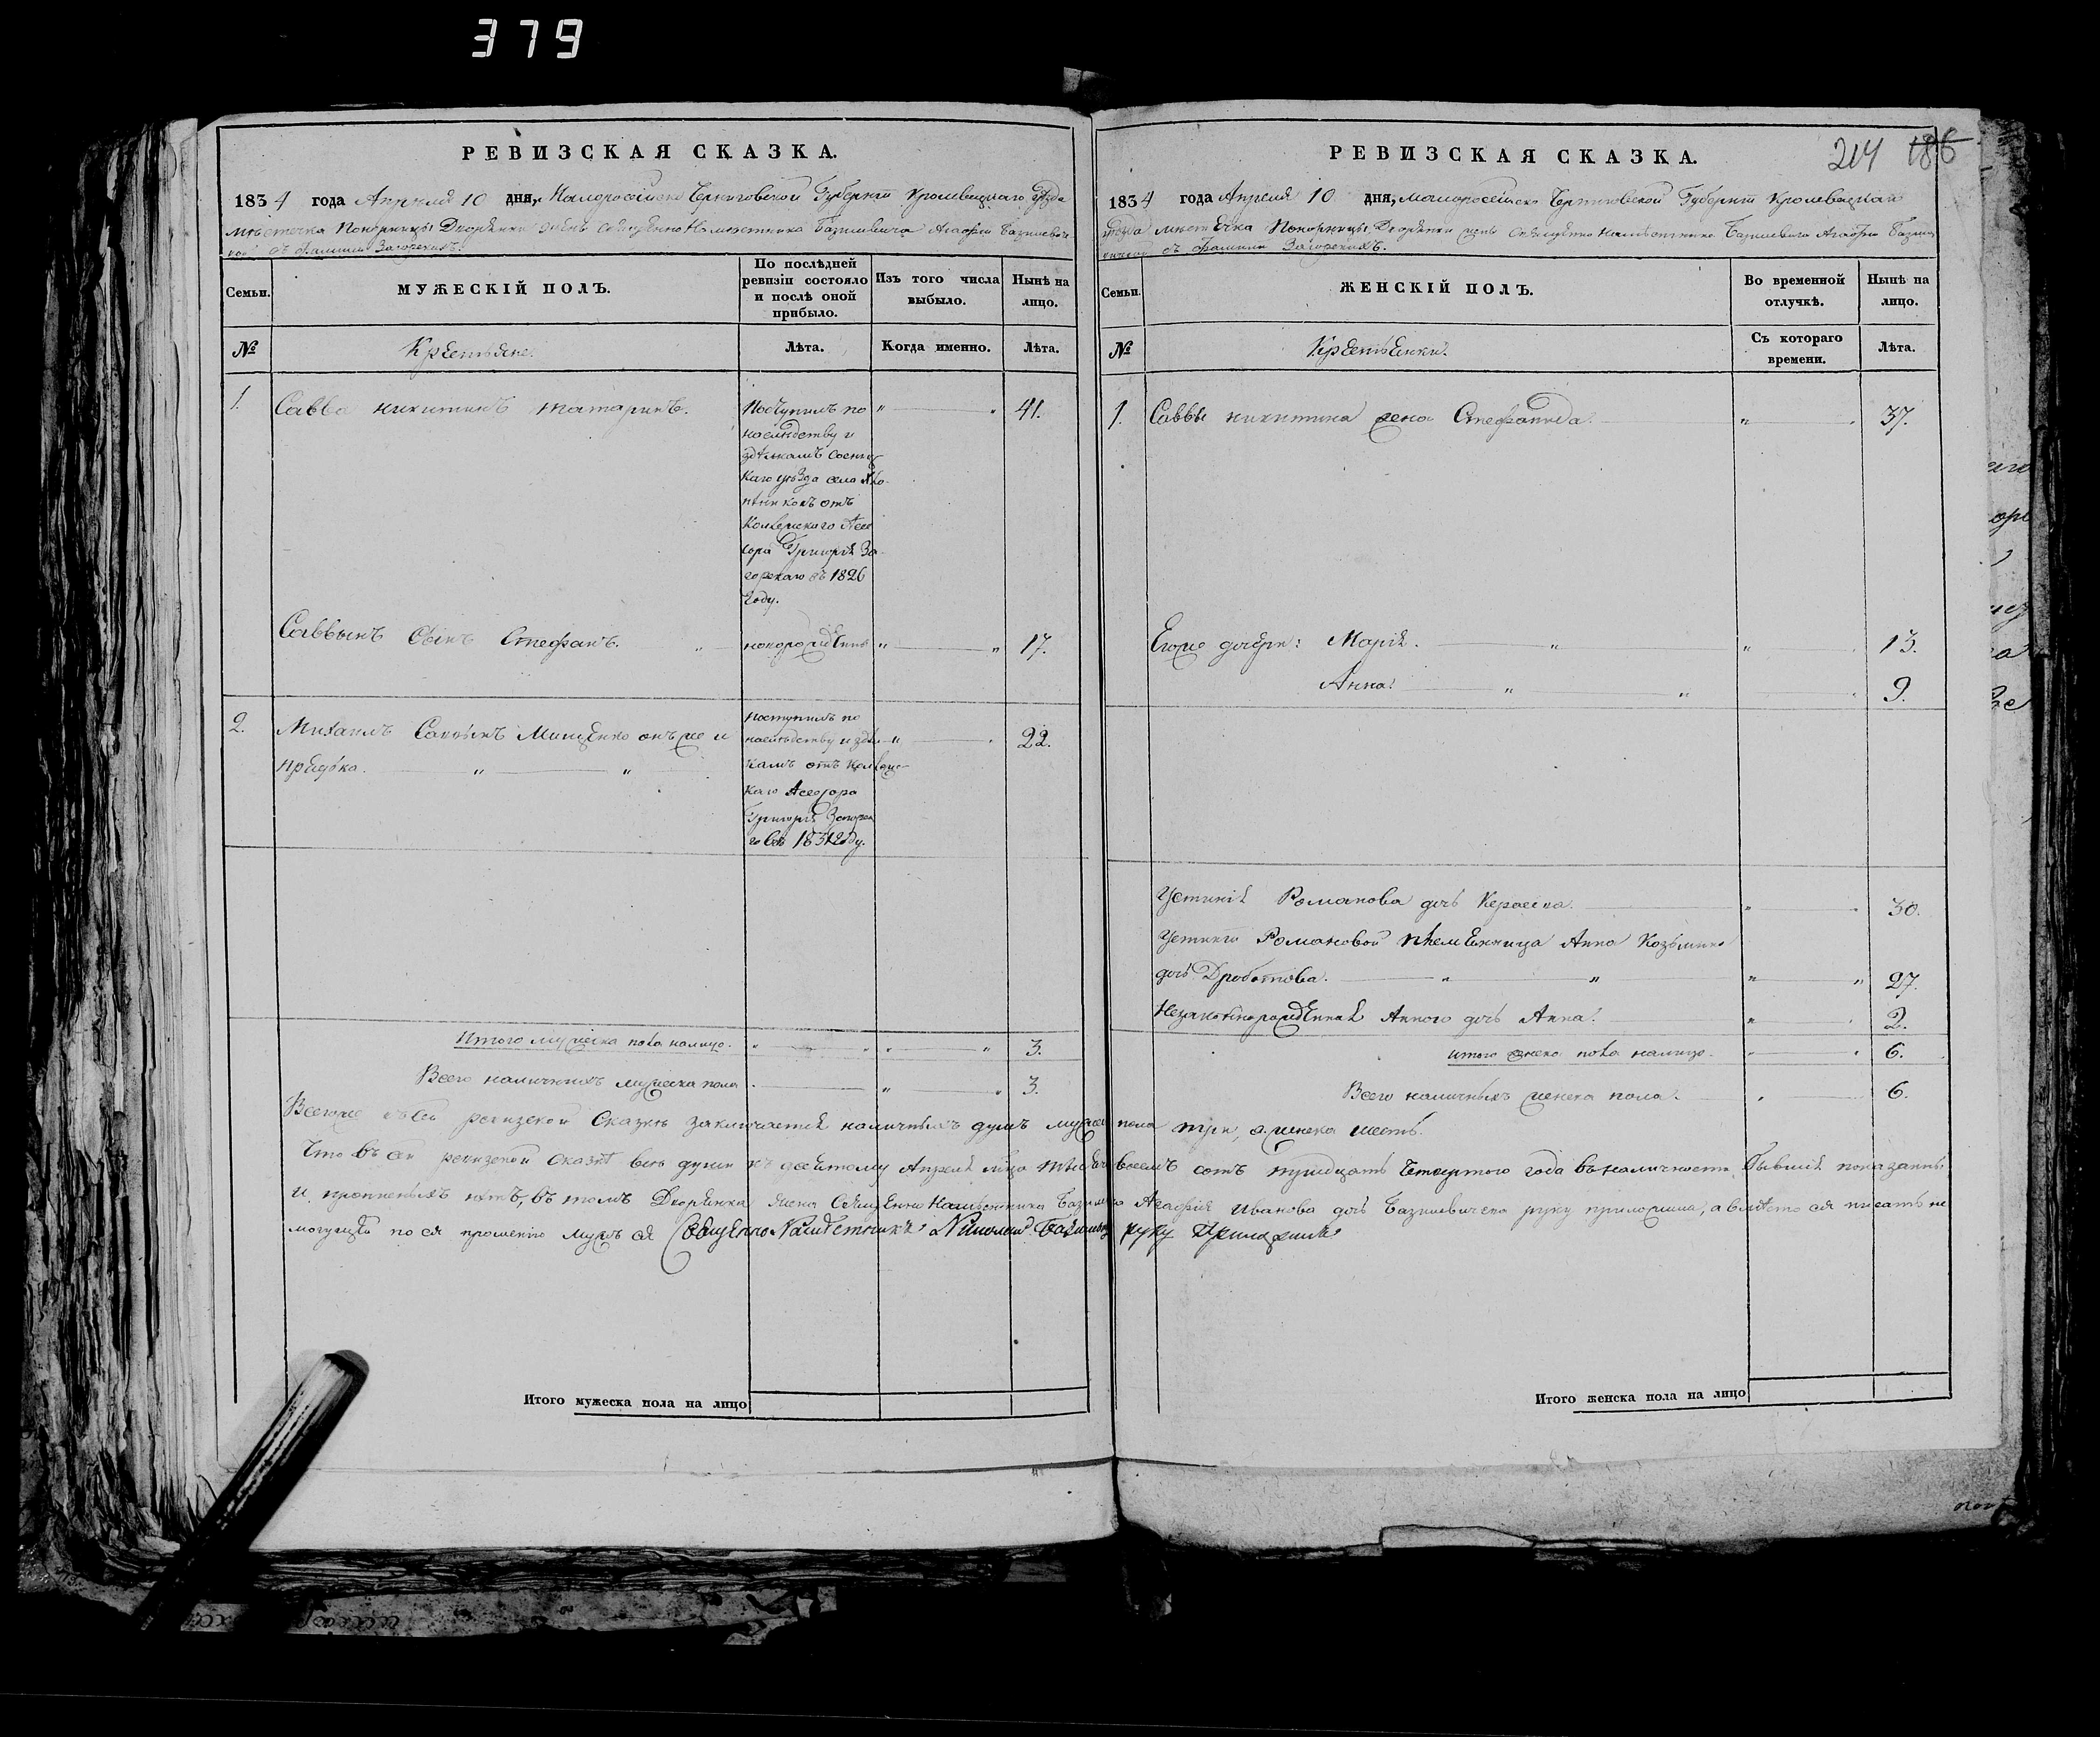 379
РЕВИЗСКАЯ СКАЗКА.
1834 года Апреля 10 дня, Малоросійско Черниговской Губерніи Кролевецкаго уѣзда
мѣстечка Понорницы Дворянки жены Священно Намѣстника Базилевича Агафіи Базилевичевой
съ фамиліи Загорскихъ.
Семьи.
МУЖЕСКІЙ ПОЛЪ.
По послѣдней
ревизіи состояло
и послѣ оной
прибыло.
Изъ того числа
выбыло.
Нынѣ на
лицо.
№
Крестьяне.
Лѣта.
Когда именно.
Лѣта.
1. Савва никитинъ татаринъ. 41.
Поступилъ по
наслѣдству и
Каго уѣзда села
отъ
Колежского Асе
сора Григорія За-
горскаго въ 1826
Году.
Саввынъ Сынъ Стефанъ. новорожденъ 17.
2. Михаилъ Савинъ Мищенко онъ же и 22.
Поступилъ по
наслѣдству и здѣл
камъ отъ Колежс-
каго Асесора
Григорія Загорска
го въ 1831 году.
Итого мужеска пола налицо. 3.
Всего наличныхъ мужеска пола 3.
РЕВИЗСКАЯ СКАЗКА.
214 186
1834 года Апреля 10 дня, малоросейско Черниговской Губерніи Кролевецкаго
уѣзда местечка Понорницы, Дворянки жены Священно Намѣстника Базилевича Агафіи Базиле
вичевой съ фамиліи Загорскихъ.
Семьи.
ЖЕНСКІЙ ПОЛЪ.
Во временной
отлучкѣ.
Нынѣ на
лицо.
№
Крестьянки.
Съ котораго
времени.
Лѣта.
1. Саввы никитина жена Стефанида. 37.
Егоже дочери: Марія. 13.
Анна. 9.
Устинія Романова дочь Кераска. 30.
Устиніи Романовой племенница Анна Козьмина
дочь Дроботова. 27.
Незаконнорожденная Анного дочь Анна. 2.
итого женска пола налицо. 6.
Всего наличныхъ женска пола. 6.
Всегоже въ сей ревизской Сказкѣ заключается наличныхъ душъ мужеска пола три, а женска шесть.
Что въ сей ревизской сказкѣ всѣ души къ десятому Апреля мца тысяча восемъ сотъ тридцать четвертого года въ наличности бывшія показаны
и пропиеныхъ нѣтъ, въ томъ Дворянка жена Священно Намѣстника Базилевича Агафія Иванова дочь Базилевичева руку приложила, а вмѣсто ея писать не
могущей по ея прошенію мужъ ея Священно Намѣстникъ Николай Базилевичъ руку Приложилъ
Итого мужеска пола на лицо
Итого женска пола на лицо